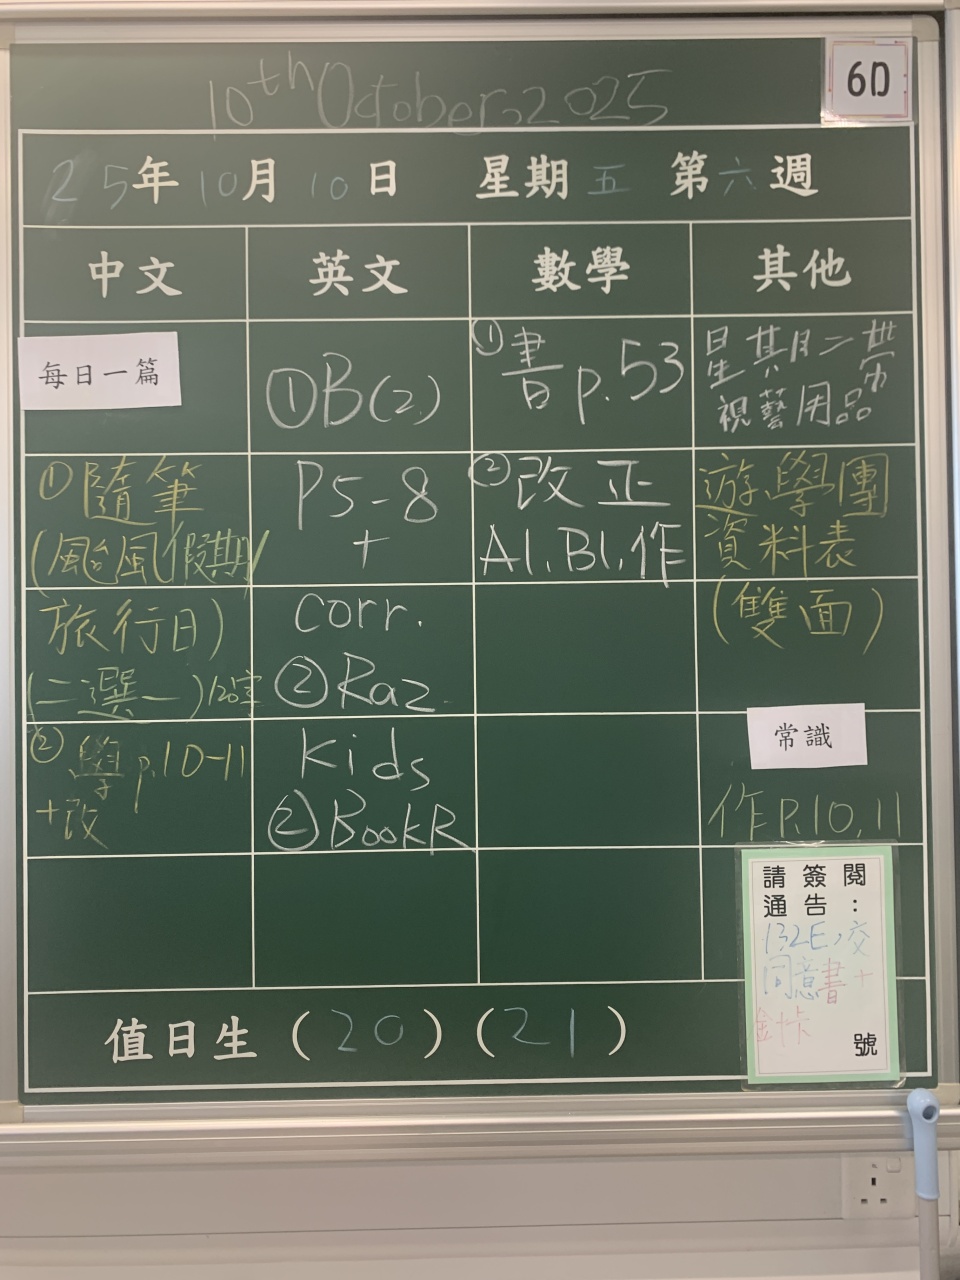 10th October, 2025
6D
25年10月10日 星期五 第六週
中文 英文 數學 其他
每日一篇
①隨筆
(颱風假期/
旅行日)
(二選一)120字
②學p.10-11
+改
①B(2)
P5-8
+
corr.
②Raz
Kids
②BookR
①書p.53
②改正
A1.B1.作
星期二帶
視藝用品
遊學團
資料表
(雙面)
常識
作P.10,11
請簽閱
通告:
132E,交
同意書+
號
值日生(20)(21)